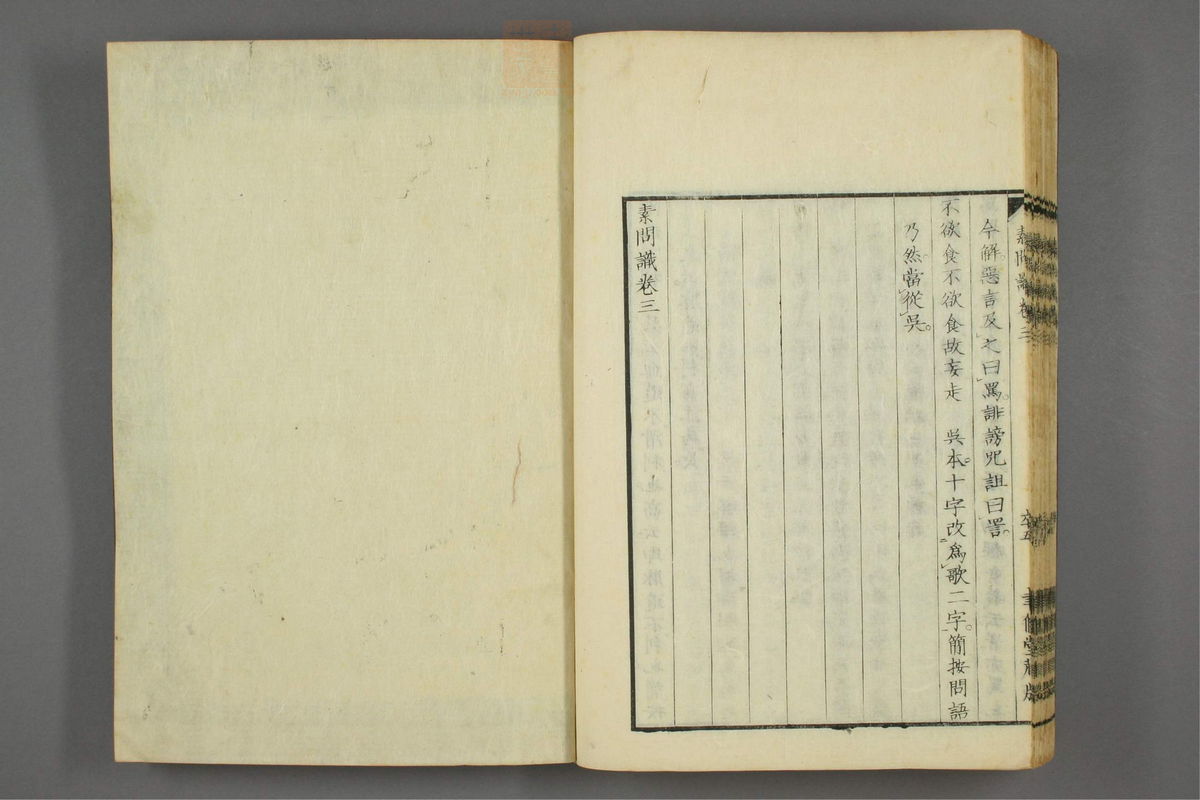 今解惡言及之曰罵誹謗咒詛曰詈
不欲食不欲食故妄走 吳本十字改爲歌二字簡按問語
乃然當從吳
素問識卷三
素問識卷三